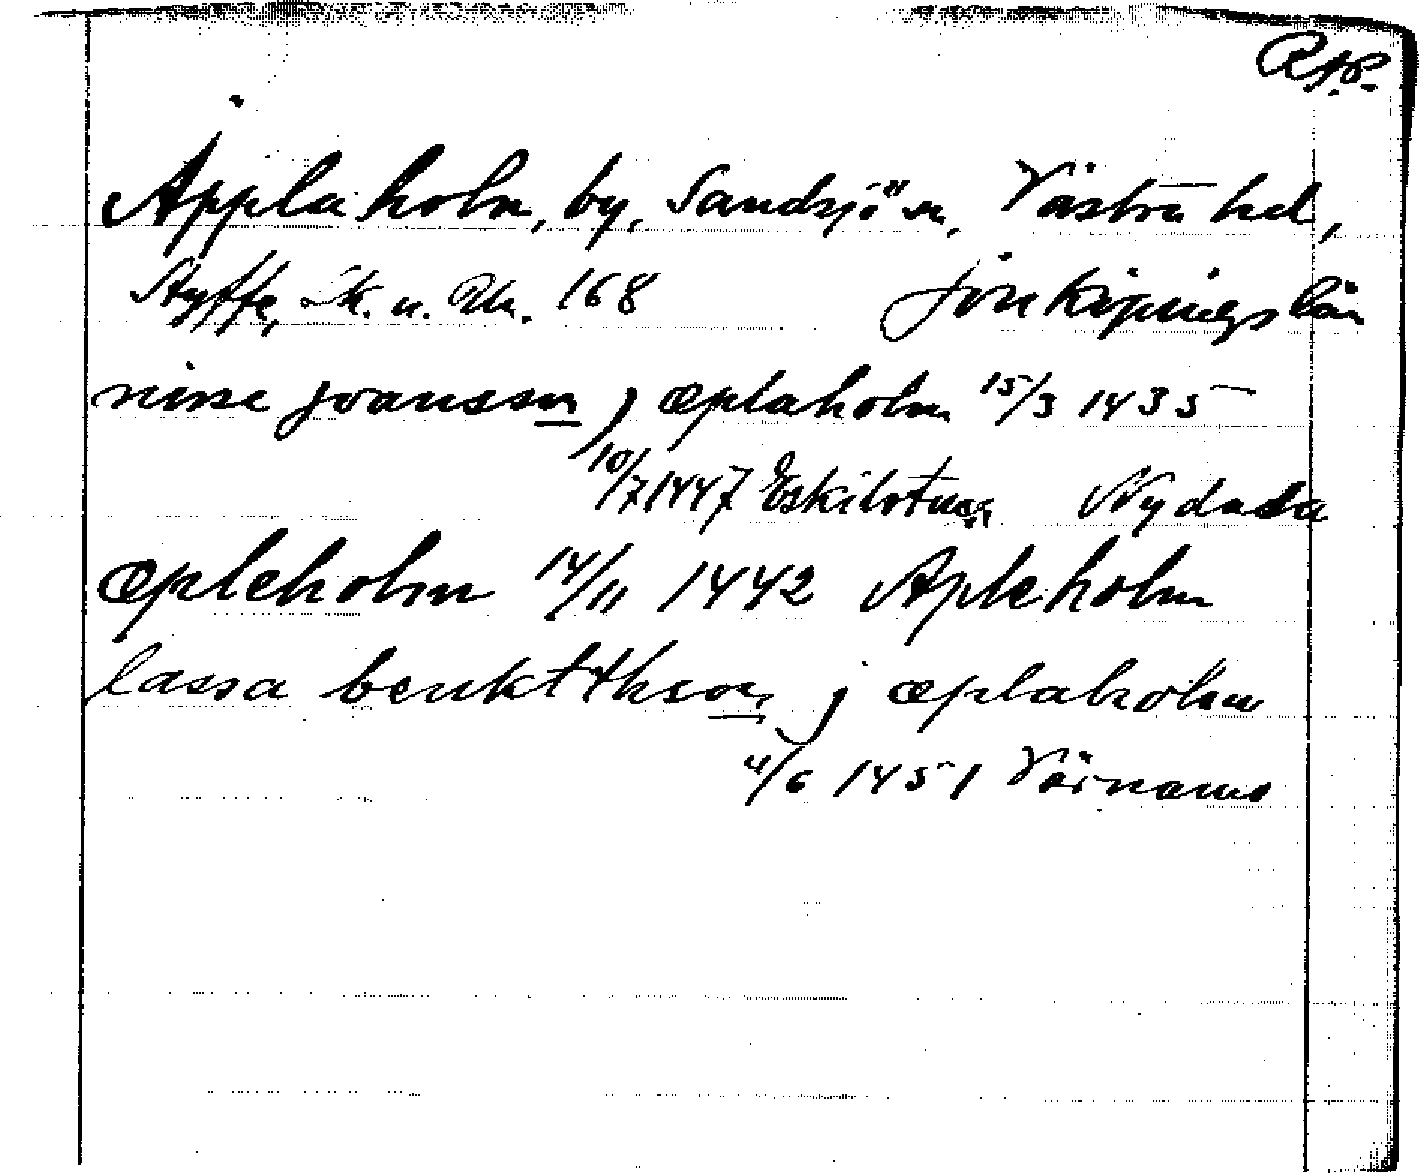 RAP.
Äpplaholm, by, Sandsjö sn, Västra hd,
Styffe, Sk. u. Un. 168 Jönköpings län
nisse joansson j æplaholm 15/3 1435
10/7 1447 Eskilstuna Nydala
æpleholm 14/11 1442 Apleholm
lassa benktthson j æplaholm
4/6 1451 Värnamo